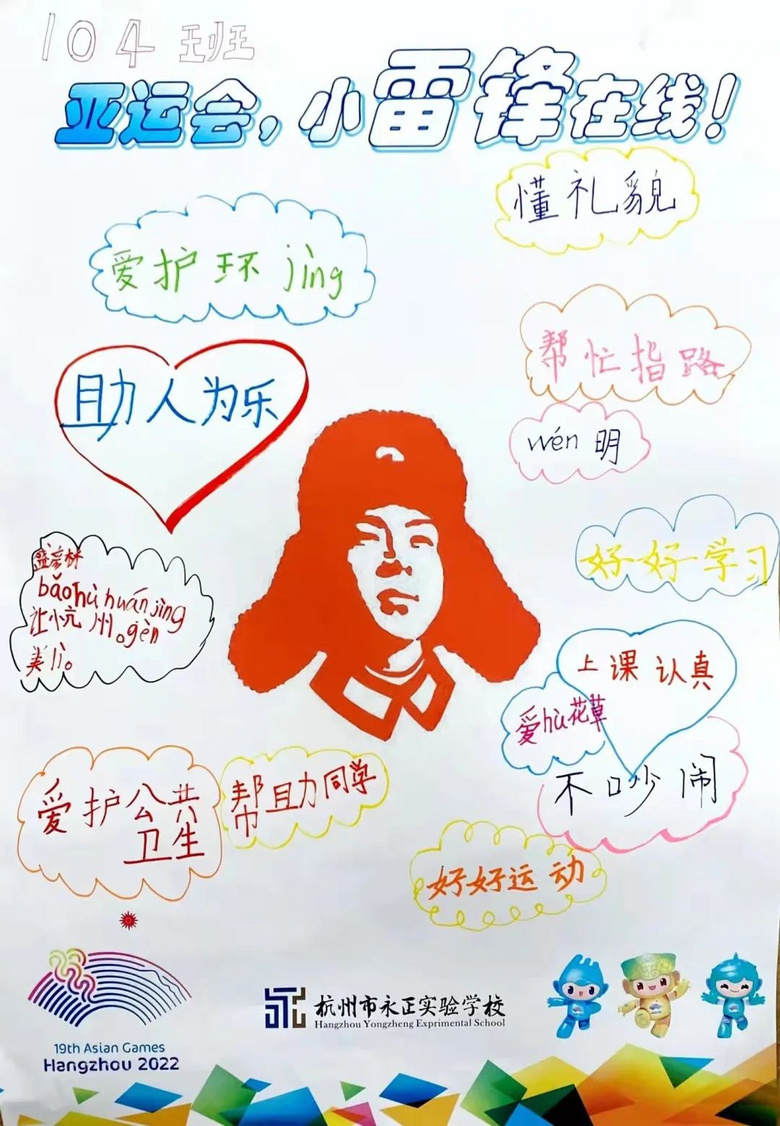 104 班
亚运会，小雷锋在线！
懂礼貌
爱护环jìng
帮忙指路
助人为乐
wén 明
好好学习
bǎohù huánjìng
让杭州。gèn
美lì。
上课认真
爱hù花草
不吵闹
爱护公共
卫生
帮助同学
好好运动
19th Asian Games
Hangzhou 2022
杭州市永正实验学校
Hangzhou Yongzheng Exprimental School